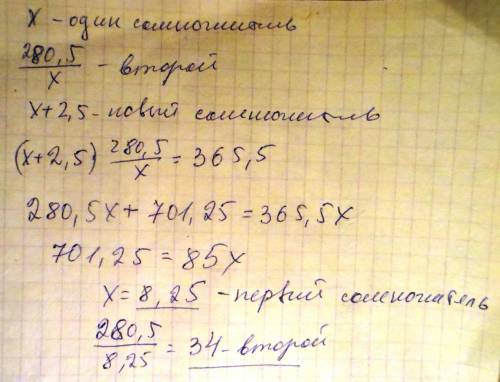 x - один сомножитель
280,5/x - второй
x+2,5 - новый сомножитель
(x+2,5) 280,5/x = 365,5
280,5x + 701,25 = 365,5x
701,25 = 85x
x = 8,25 - первый сомножитель
280,5/8,25 = 34 - второй